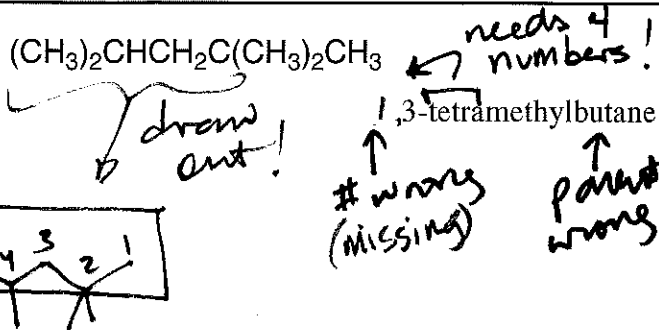 (CH₃)₂CHCH₂C(CH₃)₂CH₃
needs 4
numbers!
1,3-tetramethylbutane
draw
out!
# wrong
(missing)
parent
wrong
4 3 2 1